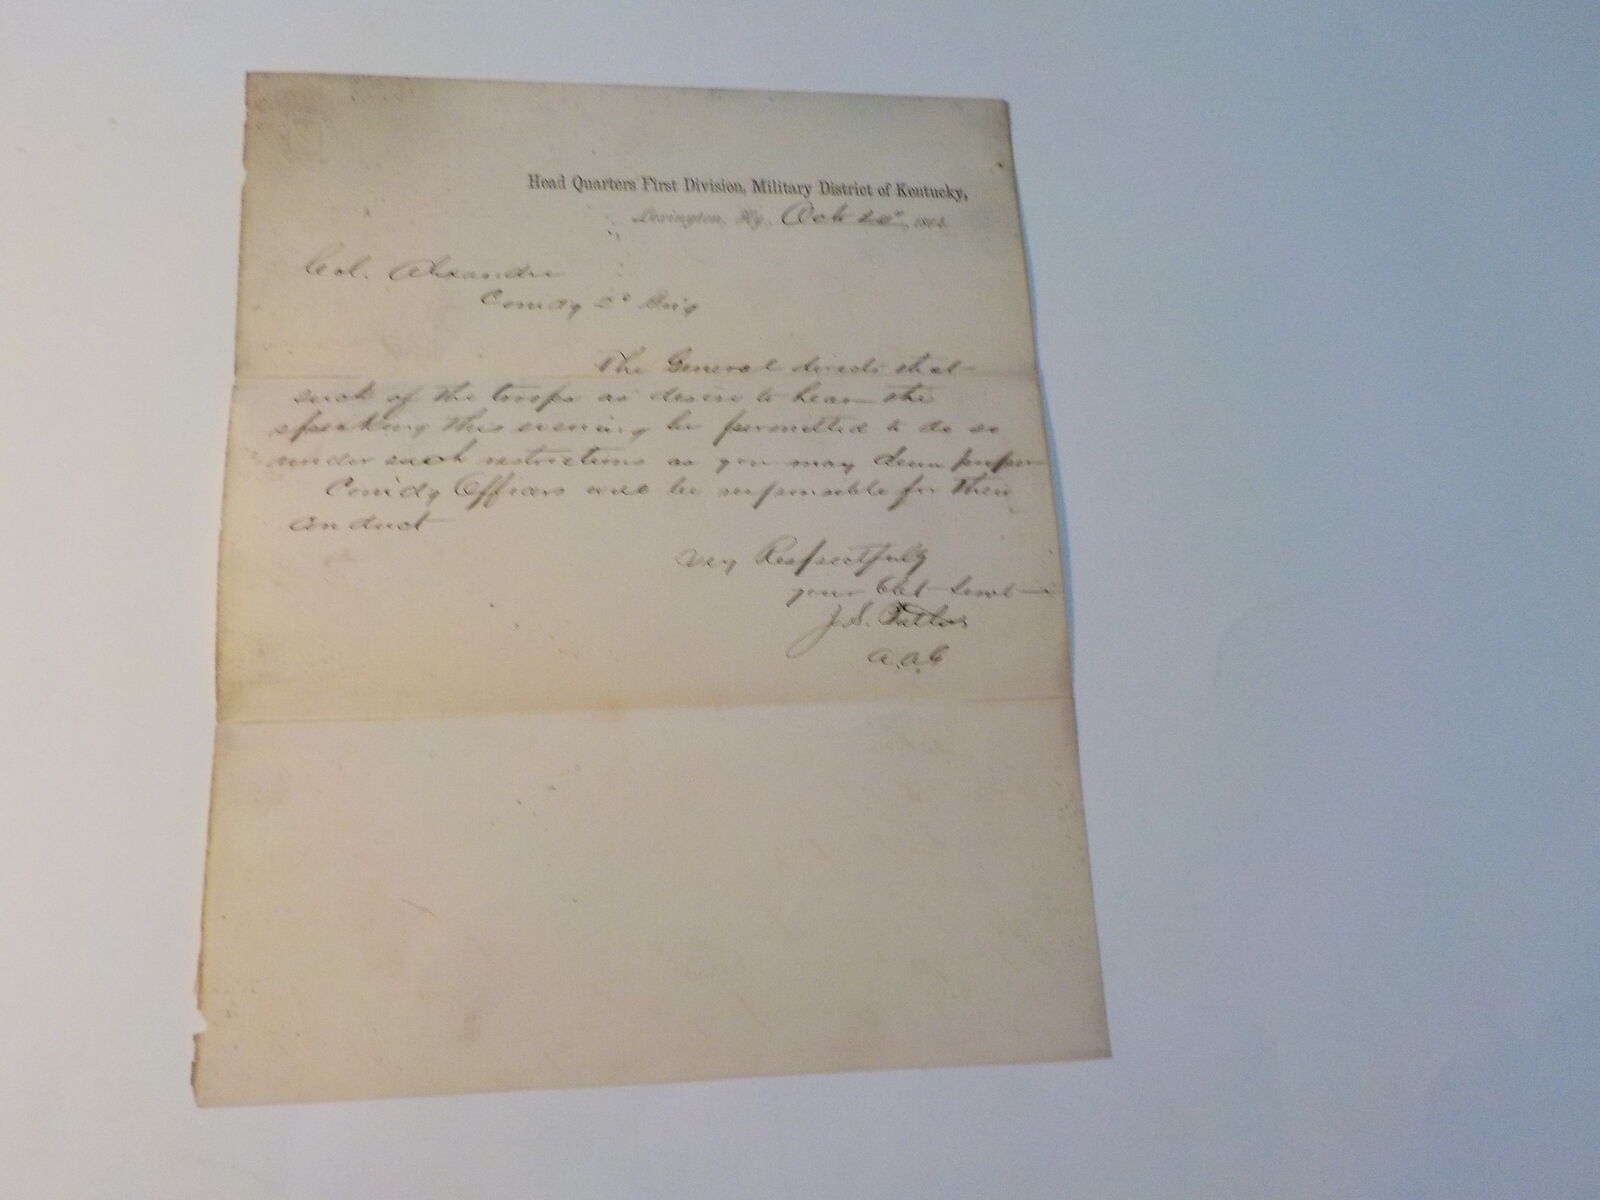 Head Quarters First Division, Military District of Kentucky,
Lexington, Ky., Oct 186
Col. Alexander
Comdg 2d Brig
The General directs that
such of the troops as desire to hear the
speaking this evening be permitted to do so
under such restrictions as you may deem proper
Comdg Officers will be responsible for their
conduct
Very Respectfully
your Obt Servt
J.S.
A.A.G